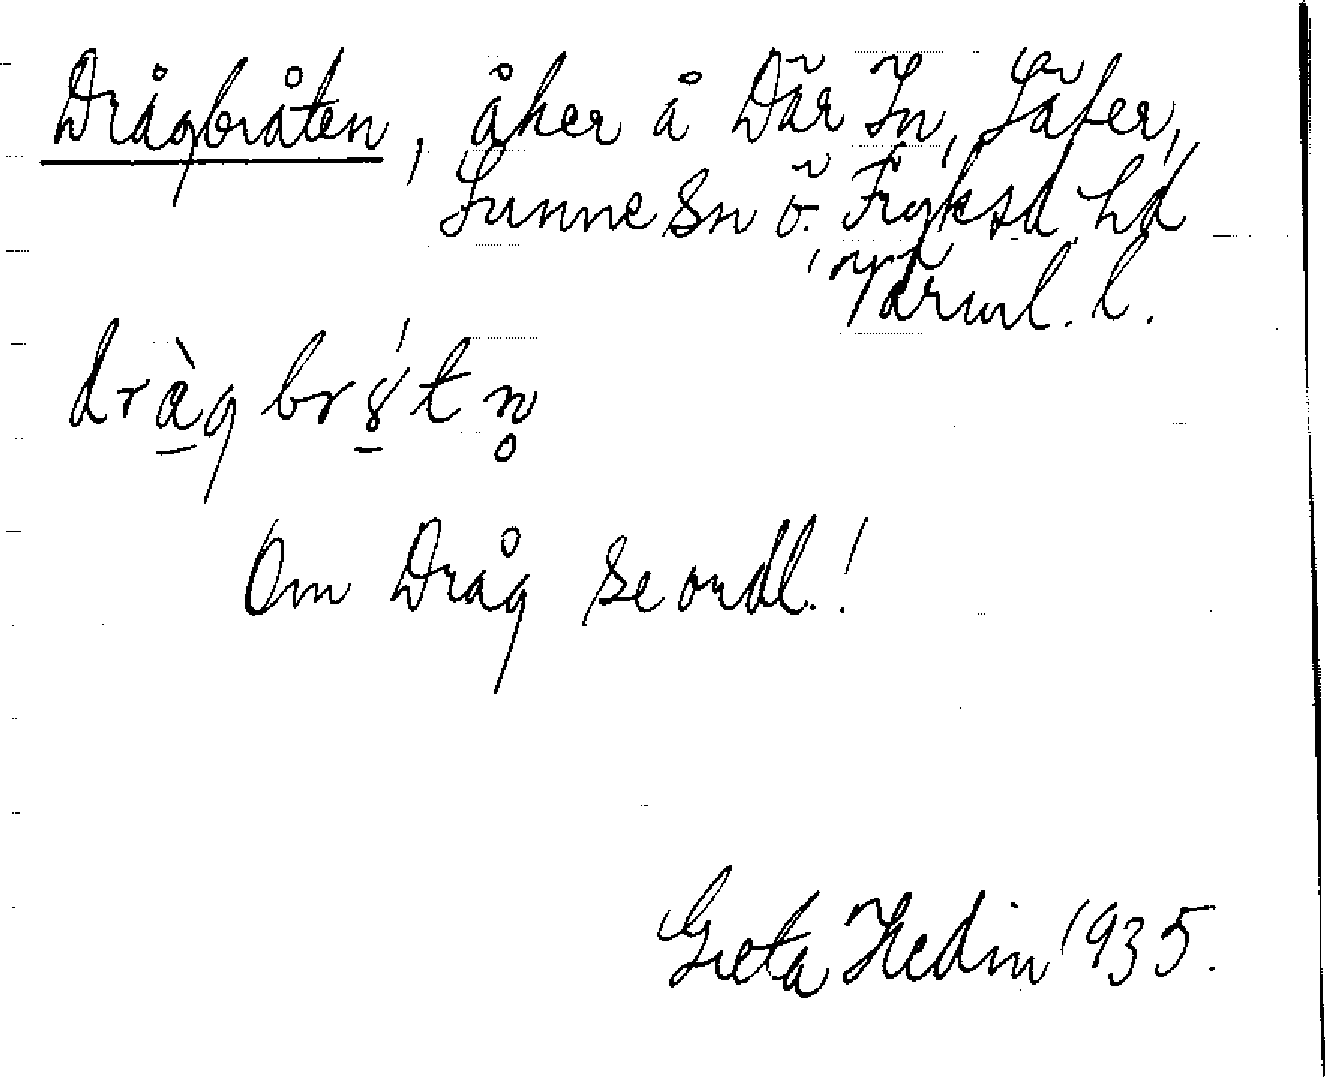 Drågbråten, åker å Där In, Säfer,
Sunne Sn Ö. Fryksd. hd
Värml. l.
dràg br8́tn̥
Om Dråg se ordl.!
Greta Hedin 1935.